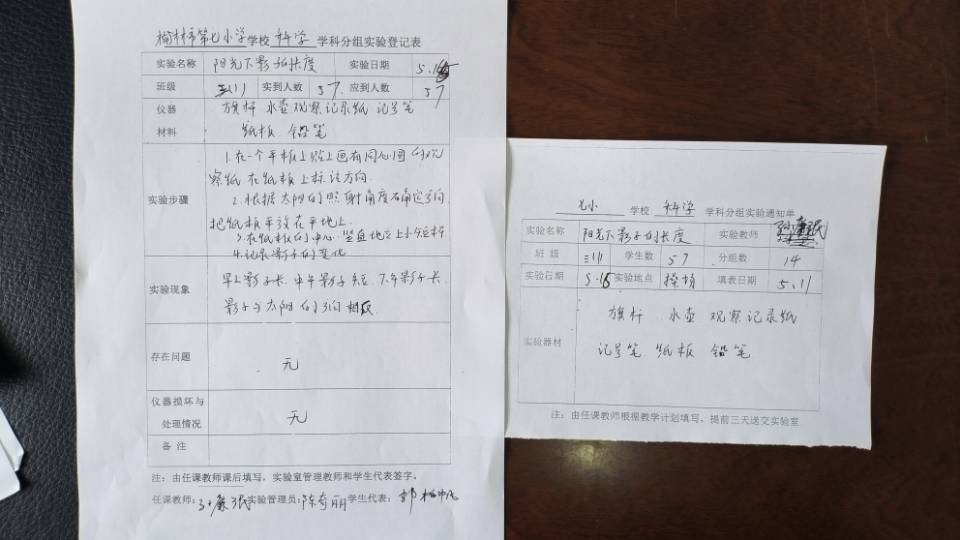 榆林市第七小学学校 科学 学科分组实验登记表
实验名称 阳光下影子的长度 实验日期 5.16
班级 三11 实到人数 57 应到人数 57
仪器 旗杆 水壶 观察记录纸 记号笔
材料 纸板 铅笔
1.在一个平板上贴上画有同心圆的观
察纸 在纸板上标注方向.
实验步骤 2.根据太阳的照射角度确定方向
把纸板平放在平地上.
3.在纸板的中心竖直地立上小短杆
4.记录影子的变化
早上影子长.中午影子短.下午影子长
实验现象
影子与太阳的方向相反.
存在问题 无
仪器损坏与
处理情况 无
备 注
注：由任课教师课后填写，实验室管理教师和学生代表签字。
任课教师： 实验管理员：陈奇丽 学生代表：郭
七小 学校 科学 学科分组实验通知单
实验名称 阳光下影子的长度 实验教师
班 级 三11 学生数 57 分组数 14
实验日期 5.16 实验地点 操场 填表日期 5.11
旗杆 水壶 观察记录纸
实验器材 记号笔 纸板 铅笔
注：由任课教师根据教学计划填写，提前三天送交实验室